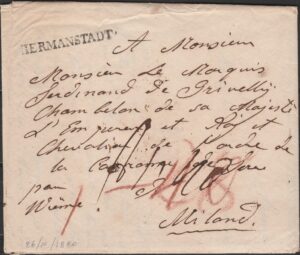 HERMANSTADT
A Monsieur
Monsieur Le Marquis
Ferdinand De
Chambelan de sa Majesté
L'Empereur et Roi et
Chevalier de l'ordre de
la Couronne de
par
Vienne
Miland.